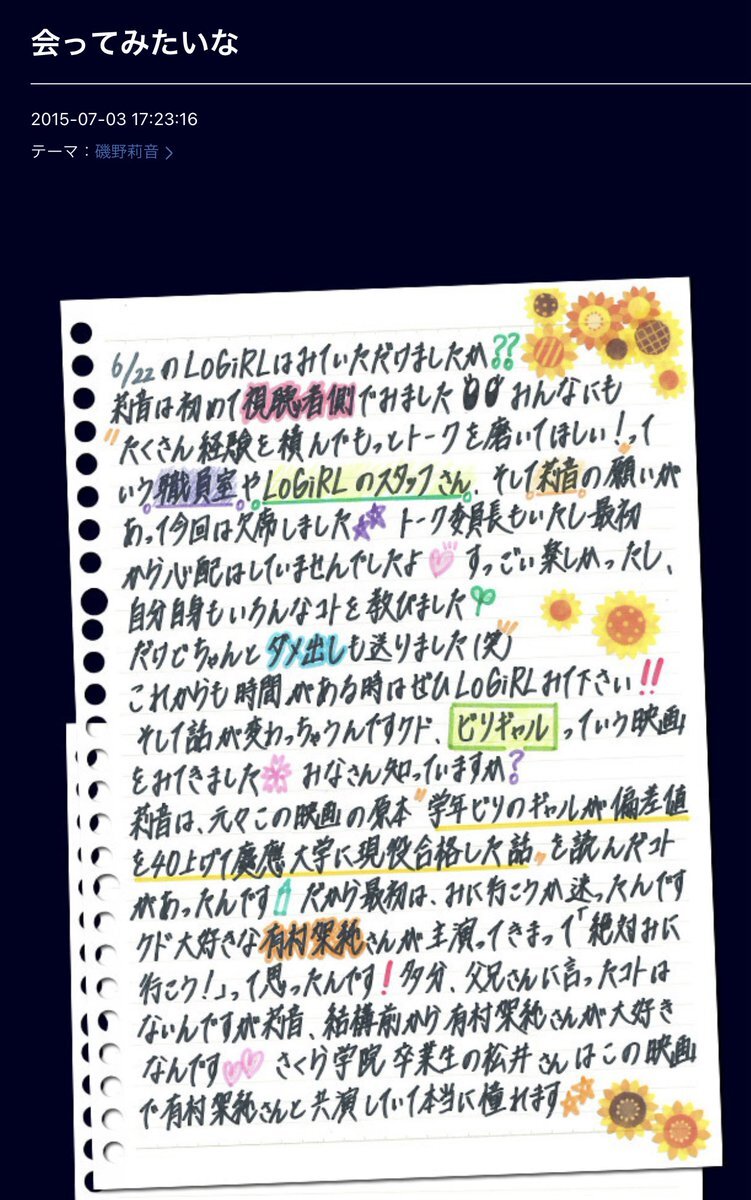 会ってみたいな
2015-07-03 17:23:16
テーマ：磯野莉音 >
6/22のLoGiRLはみていただけましたか??
莉音は初めて視聴者側でみました みんなにも
"たくさん経験を積んでもっとトークを磨いてほしい!"って
いう職員室やLoGiRLのスタッフさん、そして莉音の願いが
あって今回は欠席しました トーク委員長もいたし最初
から心配はしていませんでしたよ すっごい楽しかったし、
自分自身もいろんなコトを学びました
だけどちゃんとダメ出しも送りました(笑)
これからも時間がある時はぜひLoGiRLみて下さい!!
そして話が変わっちゃうんですケド、ビリギャルっていう映画
をみてきました みなさん知っていますか?
莉音は、元々この映画の原本"学年ビリのギャルが偏差値
を40上げて慶應大学に現役合格した話"を読んだコト
があったんです だから最初は、みに行こうか迷ったんです
ケド大好きな有村架純さんが主演ってきまって「絶対みに
行こう!」って思ったんです!多分、父兄さんに言ったコトは
ないんですが莉音、結構前から有村架純さんが大好き
なんです さくら学院卒業生の松井さんはこの映画
で有村架純さんと共演していて本当に憧れます